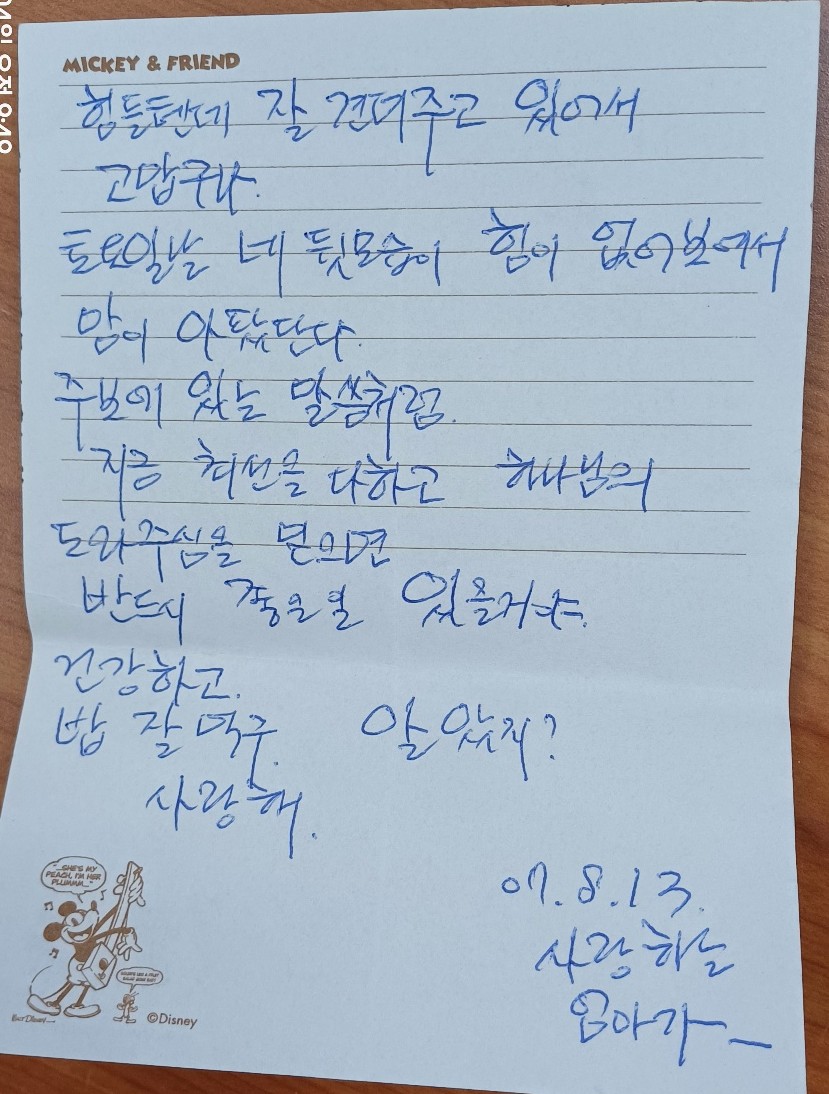 MICKEY & FRIEND
힘들텐데 잘 견뎌주고 있어서
고맙구나.
토요일날 네 뒷모습이 힘이 없어보여서
맘이 아팠단다.
주보에 있는 말씀처럼.
지금 최선을 다하고 하나님의
도와주심을 믿으면
반드시 좋은일 있을거야.
건강하고.
밥 잘 먹구. 알았지?
사랑해.
07.8.13.
사랑하는
엄마가—
"...SHE'S MY
PEACH, I'M HER
PLUMMM..."
©Disney